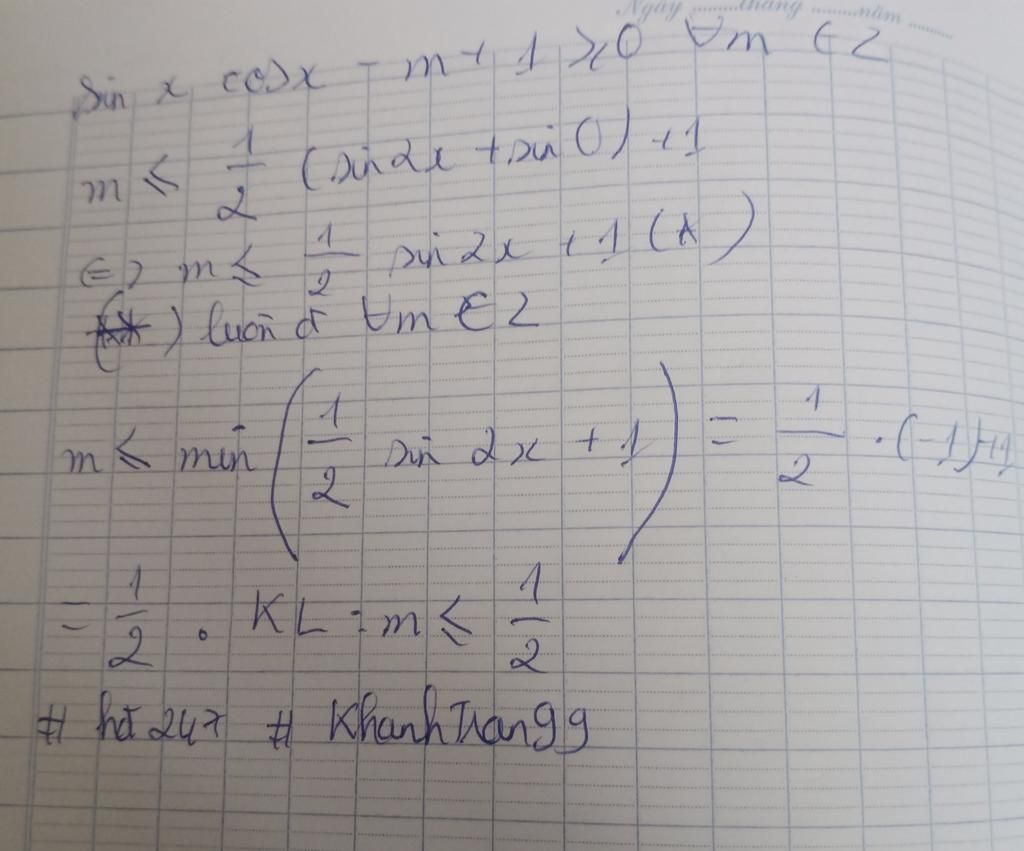 Ngày ........tháng ........năm ........
sin x cosx - m + 1 ≥ 0 ∀m ∈ Z
m ≤ 1/2 (sin 2x + sin 0) + 1
<=> m ≤ 1/2 sin 2x + 1 (*)
(*) luôn đ ∀m ∈ Z
m ≤ min (1/2 sin 2x + 1) = 1/2 . (-1)+1
= 1/2 . KL : m ≤ 1/2
# hđ 247 # KhanhTrang99